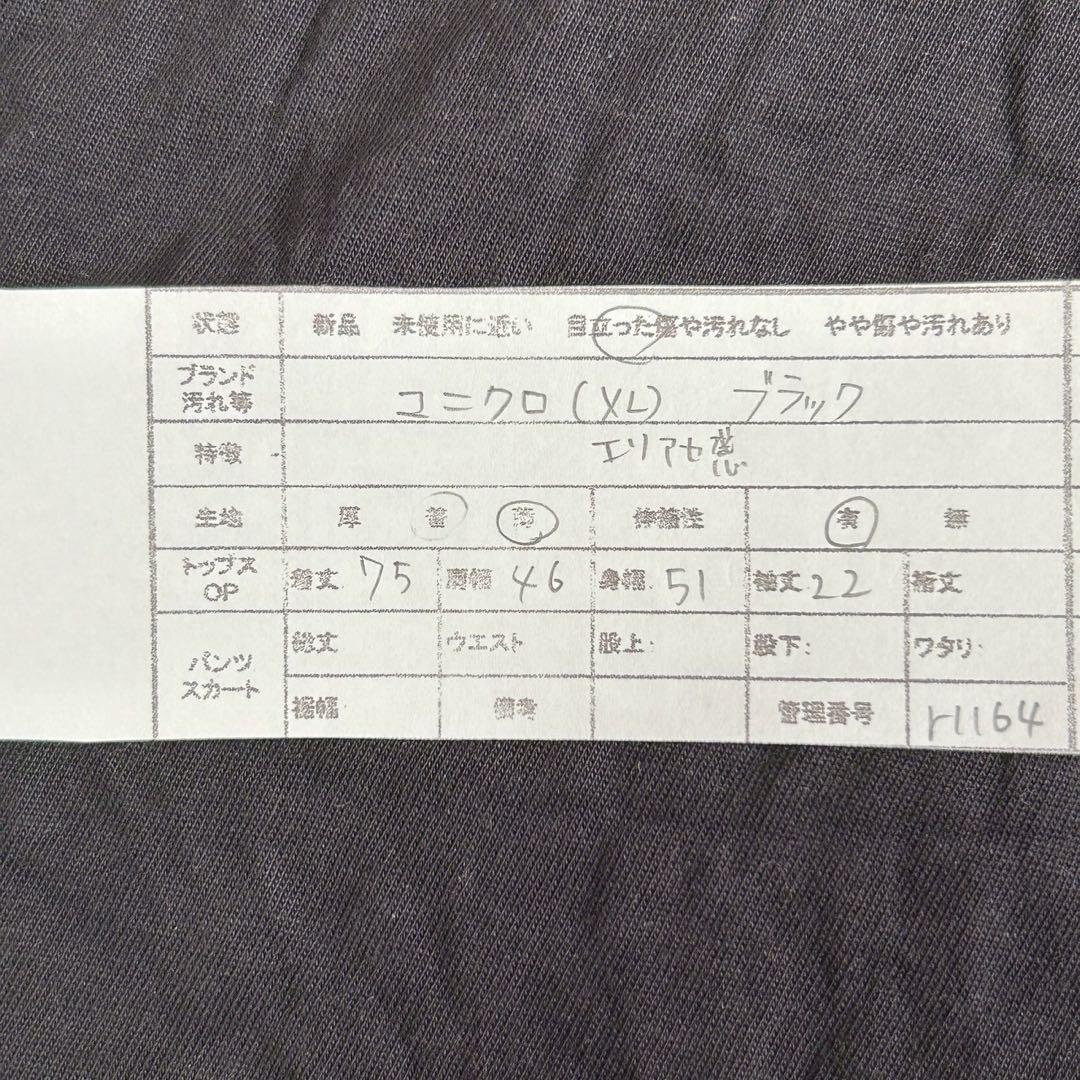 状態 新品 未使用に近い 目立った傷や汚れなし やや傷や汚れあり
ブランド
汚れ等 ユニクロ (XL) ブラック
特徴 エリアセ感
生地 厚 普 薄 伸縮性 有 無
トップス
OP 着丈 75 肩幅 46 身幅 51 袖丈 22 裾丈
パンツ
スカート
総丈 ウエスト 股上: 股下: ワタリ:
裾幅 備考 管理番号 r1164